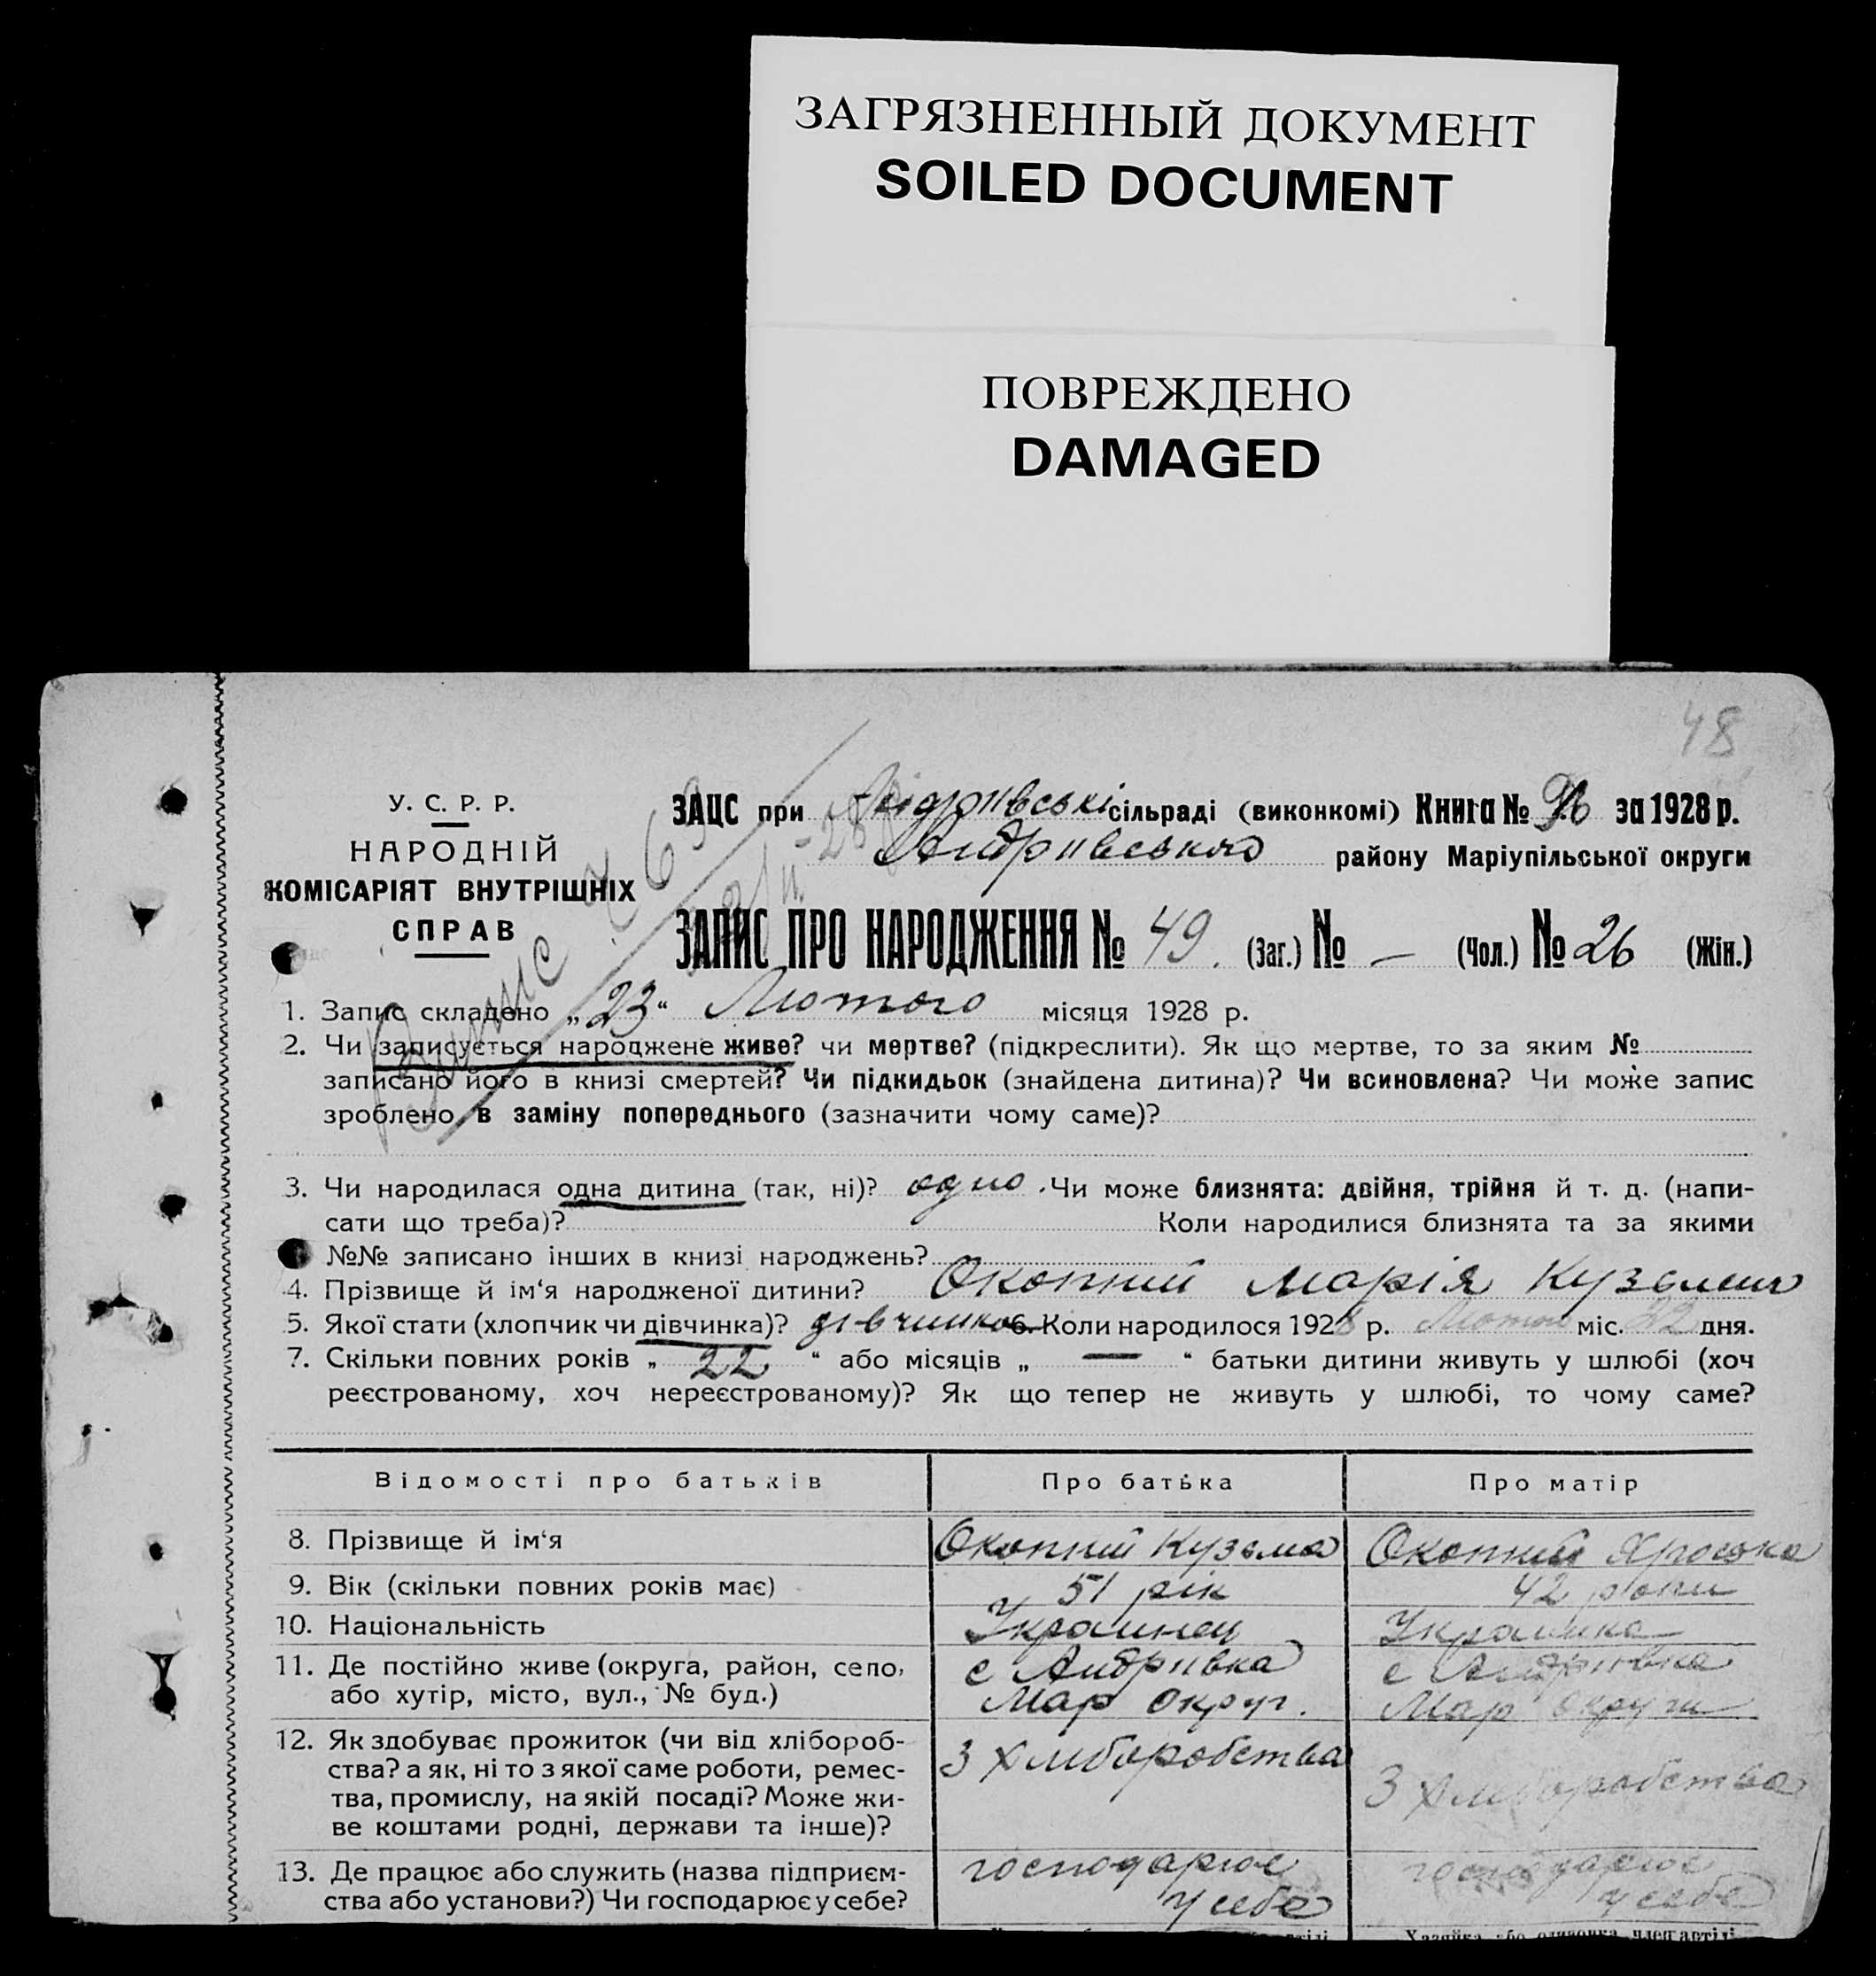 ЗАГРЯЗНЕННЫЙ ДОКУМЕНТ
SOILED DOCUMENT
ПОВРЕЖДЕНО
DAMAGED
48
У. С. Р. Р.
НАРОДНІЙ
КОМІСАРІЯТ ВНУТРІШНІХ
СПРАВ
ЗАЦС при Андріівські сільраді (виконкомі) Книга № за 1928 р.
Андріівського району Маріупільської округи
ЗАПИС ПРО НАРОДЖЕННЯ № 49. (Заг.) № — (Чол.) № 26 (Жін.)
1. Запис складено „23“ Лютого місяця 1928 р.
2. Чи записується народжене живе? чи мертве? (підкреслити). Як що мертве, то за яким №
записано його в книзі смертей? Чи підкидьок (знайдена дитина)? Чи всиновлена? Чи може запис
зроблено в заміну попереднього (зазначити чому саме)?
3. Чи народилася одна дитина (так, ні)? одно. Чи може близнята: двійня, трійня й т. д. (напи-
сати що треба)? Коли народилися близнята та за якими
№№ записано інших в книзі народжень?
4. Прізвище й ім‘я народженої дитини? Окопний Марія Кузьмин
5. Якої стати (хлопчик чи дівчинка)? дівчинка 6. Коли народилося 1928 р. Лютого міс. 22 дня.
7. Скільки повних років „ 22 “ або місяців „ — “ батьки дитини живуть у шлюбі (хоч
реєстрованому, хоч нереєстрованому)? Як що тепер не живуть у шлюбі, то чому саме?
Відомості про батьків Про батька Про матір
8. Прізвище й ім‘я Окопний Кузьма Окопний
9. Вік (скільки повних років має) 51 рік 42 роки
10. Національність Украинец Украинка
11. Де постійно живе (округа, район, село, с Андріівка с Андріівка
або хутір, місто, вул., № буд.) Мар округ. Мар округи
12. Як здобуває прожиток (чи від хлібороб-
ства? а як, ні то з якої саме роботи, ремес-
тва, промислу, на якій посаді? Може жи-
ве коштами родні, держави та інше)?
З хліборобства З хліборобства
13. Де працює або служить (назва підприєм- господарює господарює
ства або установи?) Чи господарює у себе? у себе у себе